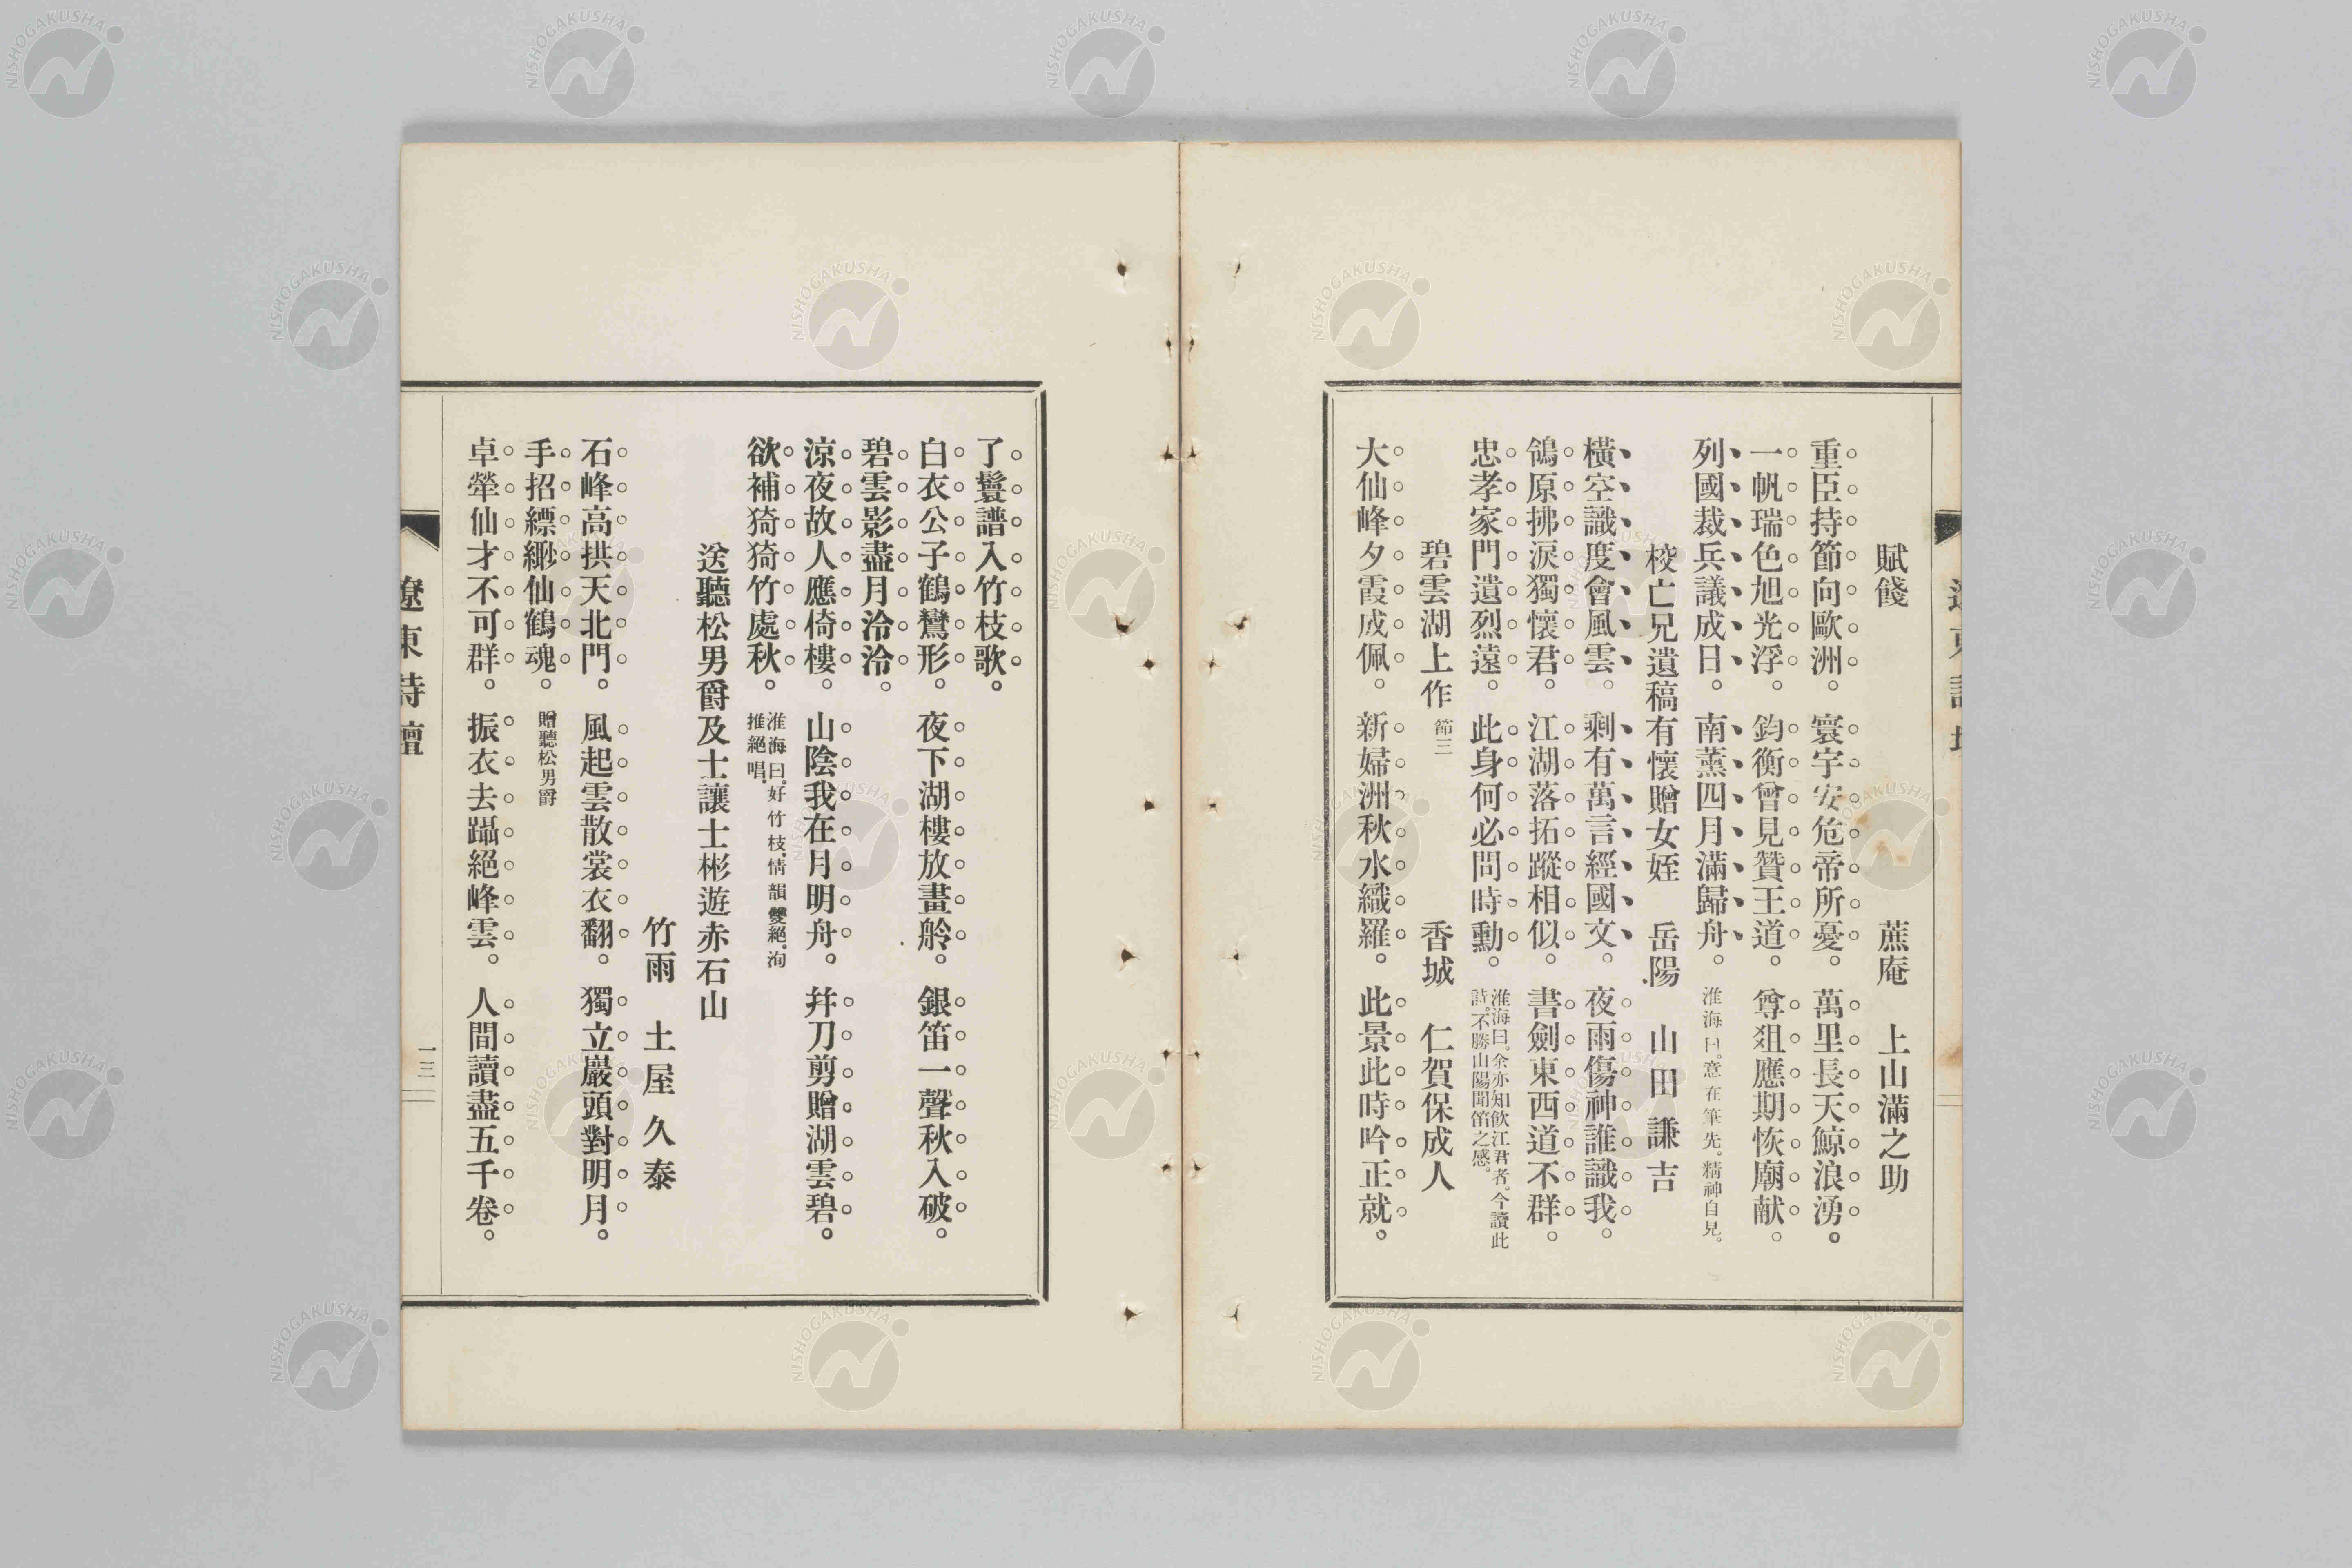 賦餞　蔗庵　上山滿之助
重臣持節向歐洲。寰宇安危帝所憂。萬里長天鯨浪湧。
一帆瑞色旭光浮。鈞衡曾見贊王道。尊俎應期恢廟献。
列國裁兵議成日。南薰四月滿歸舟。淮海曰。意在筆先。精神自見。
校亡兄遺稿有懷贈女姪　岳陽　山田謙吉
橫空識度會風雲。剩有萬言經國文。夜雨傷神誰識我。
鴒原拂淚獨懷君。江湖落拓蹤相似。書劍東西道不群。
忠孝家門遺烈遠。此身何必問時勳。淮海曰。余亦知飮江君者。今讀此
詩。不勝山陽聞笛之感。
碧雲湖上作　節三　香城　仁賀保成人
大仙峰夕霞成佩。新婦洲秋水織羅。此景此時吟正就。
遼東詩壇
了鬟譜入竹枝歌。
白衣公子鶴鸞形。夜下湖樓放畫舲。銀笛一聲秋入破。
碧雲影盡月泠泠。
涼夜故人應倚樓。山陰我在月明舟。幷刀剪贈湖雲碧。
欲補猗猗竹處秋。淮海曰。好竹枝。情韻雙絕。洵
推絕唱。
送聽松男爵及士讓士彬遊赤石山
竹雨　土屋久泰
石峰高拱天北門。風起雲散裳衣翻。獨立巖頭對明月。
手招縹緲仙鶴魂。贈聽松男爵
卓犖仙才不可群。振衣去躡絕峰雲。人間讀盡五千卷。
遼東詩壇
一三
NISHOGAKUSHA